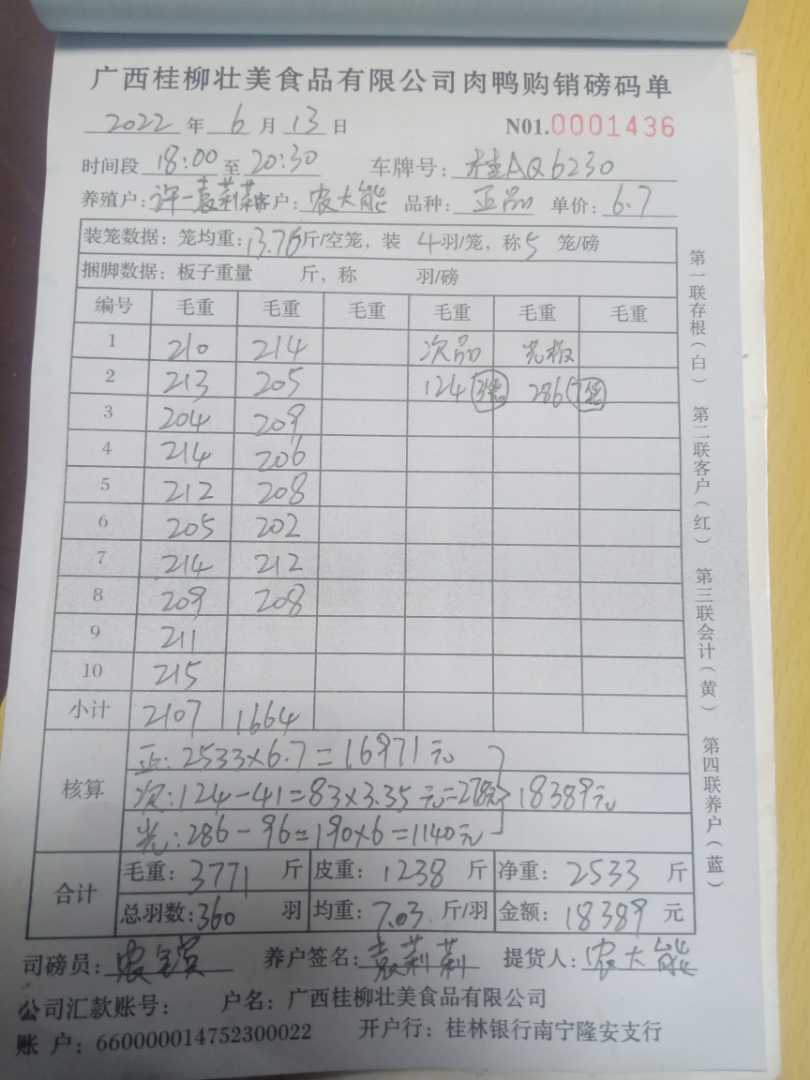 广西桂柳壮美食品有限公司肉鸭购销磅码单
2022 年 6 月 13 日 N01.0001436
时间段 18:00 至 20:30 车牌号: 桂AQ6230
养殖户: 许一袁莉莉 客户: 农大能 品种: 正品 单价: 6.7
装笼数据: 笼均重: 13.76 斤/空笼, 装 4 羽/笼, 称 5 笼/磅
捆脚数据: 板子重量 斤, 称 羽/磅
编号 毛重 毛重 毛重 毛重 毛重 毛重
1 210 214 次品 光板
2 213 205 124 3笼 286 7笼
3 204 209
4 214 206
5 212 208
6 205 202
7 214 212
8 209 208
9 211
10 215
小计 2107 1664
核算
正: 2533×6.7=16971元
次: 124-41=83×3.35元=278元 18389元
光: 286-96=190×6=1140元
合计
毛重: 3771 斤 皮重: 1238 斤 净重: 2533 斤
总羽数: 360 羽 均重: 7.03 斤/羽 金额: 18389 元
司磅员: 农 养户签名: 袁莉莉 提货人: 农大能
公司汇款账号: 户名: 广西桂柳壮美食品有限公司
账 户: 660000014752300022 开户行: 桂林银行南宁隆安支行
第一联存根(白) 第二联客户(红) 第三联会计(黄) 第四联养户(蓝)